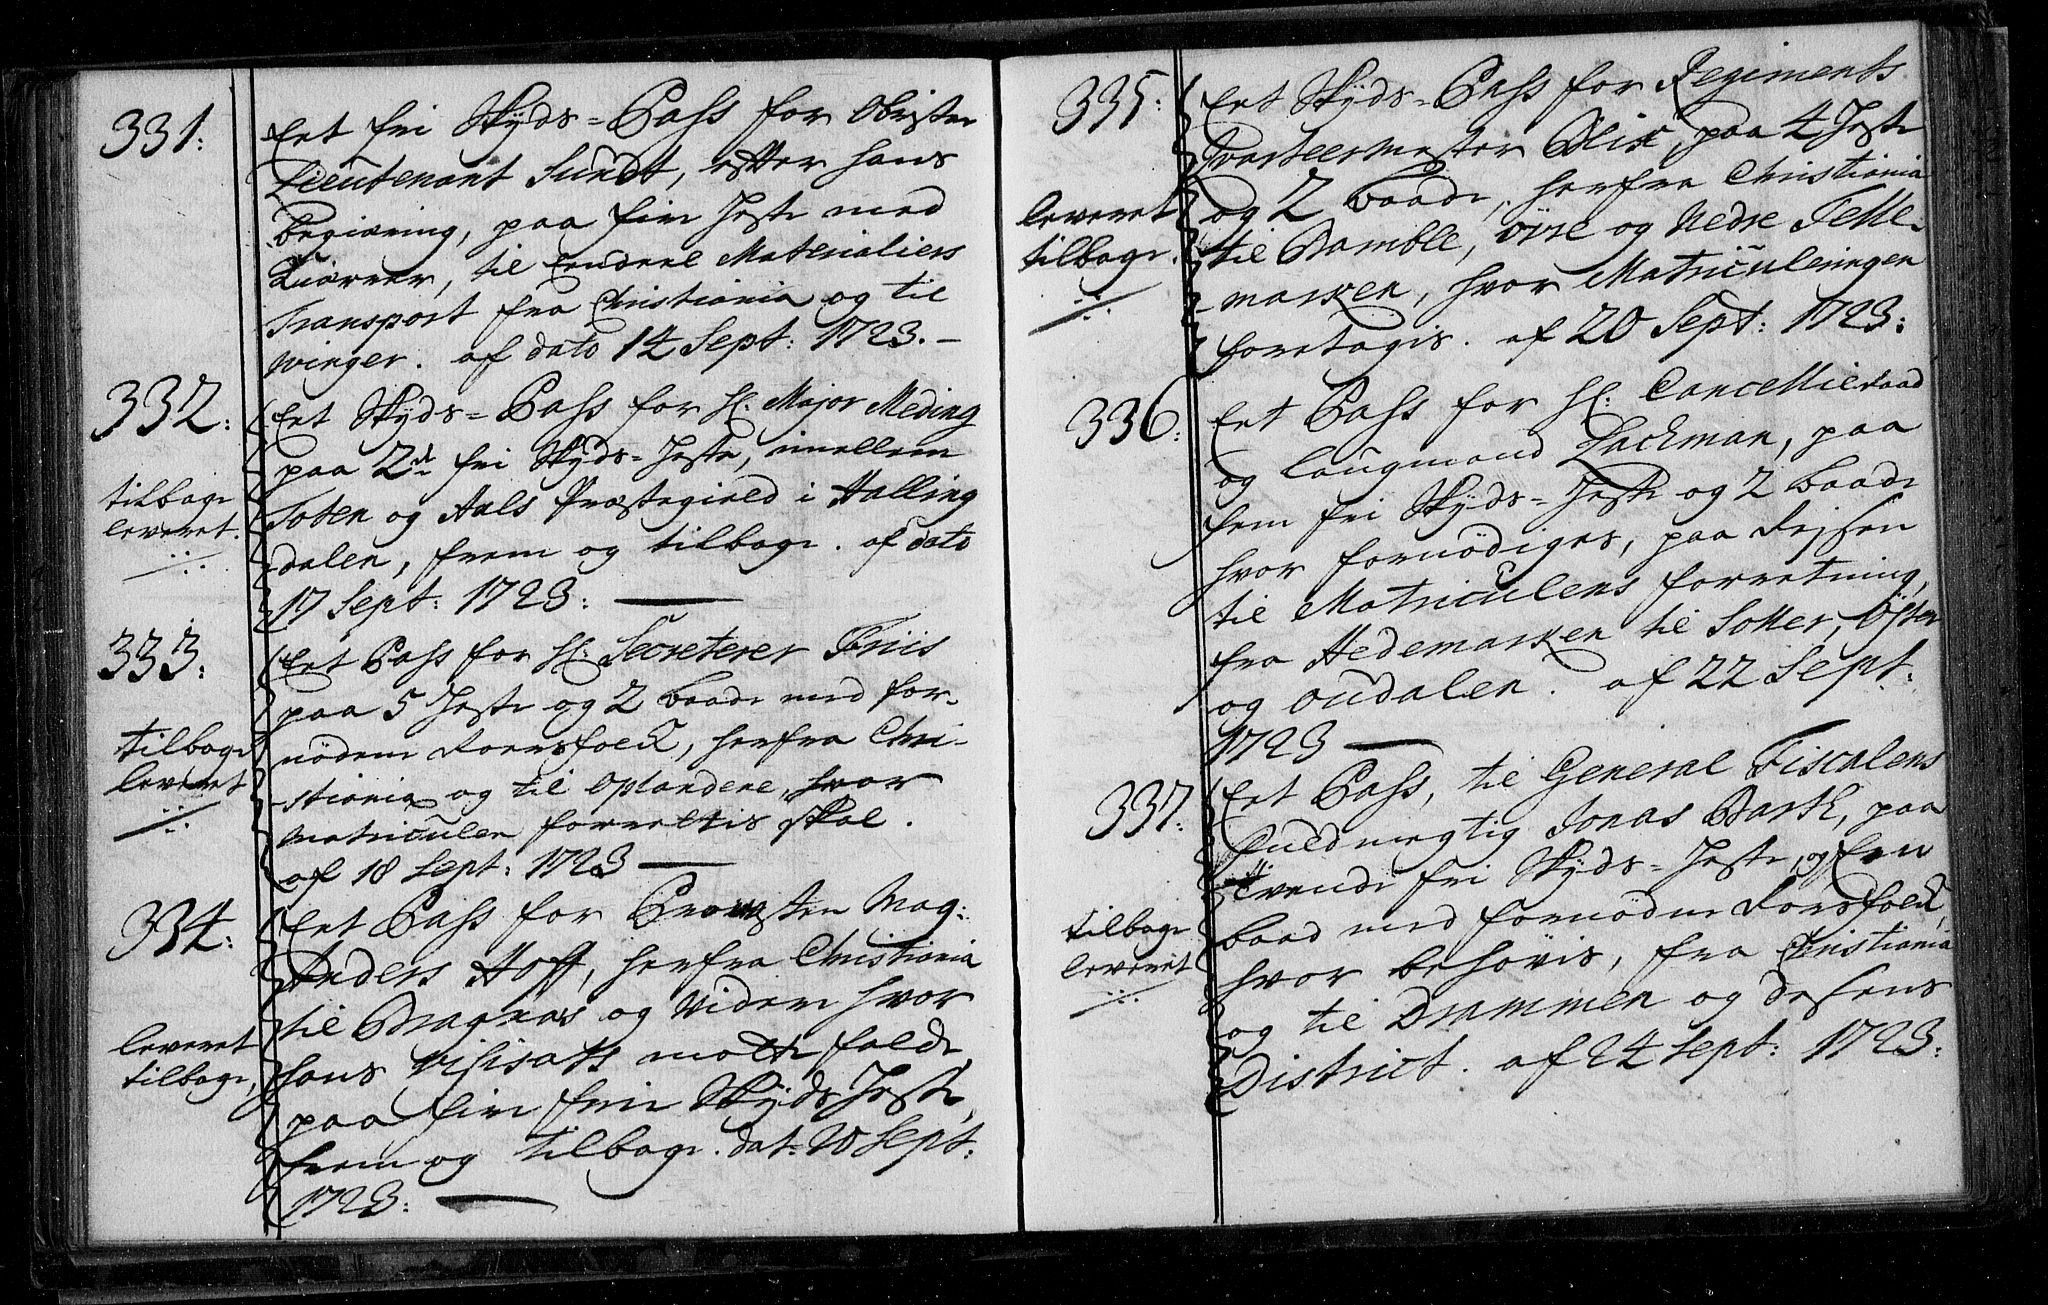 331:
Ert fri Skyds-Pass for Obrister
Lieutenant Sundt, efter hans
begiæring, paa fire Heste med
Kiærrer, til endeel Materialiers
Transport fra Christiania og til
Winger. af dato 14 Sept: 1723.-
332:
tilbage
leveret.
Ert Skyds-Pass for H: Major Meding
paa 2de fri Skyds-Heste, imellem
Toten og Aals Præstegield i Halling
dalen, frem og tilbage. af dato
17 Sept: 1723:
333:
tilbage
leveret
Ert Pass for H: Secreterer Friis
paa 5 Heste og 2 baade med for-
nöden Roersfolck, herfra Chri-
stiania og til Oplandene, hvor
Matriculen forrettis skal.
af 18 Sept: 1723
334:
leveret
tilbage,
Ert Pass for Provsten Mag:
Anders Hoff, herfra Christiania
til Bragnæs og Videre hvor
hans Visitats motte falde,
paa fire frie Skyds Heste,
frem og tilbage. dat: 20 Sept:
1723:
335:
leveret
tilbage.
Ert Skyds-Pass for Regiments
Qvarteermester Blix, paa 4 Heste
og 2 baade, herfra Christiania
til Bamble, övre og Nedre Telle-
marken, hvor Matriculeringen
foretagis. af 20 Sept: 1723:
336:
Ert Pass for H: Cancellieraad
og Laugmand Lackman, paa
fem fri Skyds-Heste og 2 baade
hvor fornödiges, paa Rejsen
til Matriculens forretning,
fra Hedemarken til Soller, Öster
og Oudalen. af 22 Sept:
1723
337:
tilbage
leveret
Ert Pass, til General Fiscalens
Fuldmegtig Jonas Barth, paa
tvende fri Skyds-Heste, og Een
baad med fornöden Roersfolck,
hvor behövis, fra Christiania
og til Drammen og desens
District. af 24 Sept: 1723: